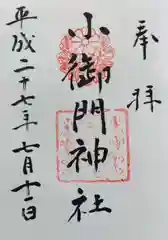 奉拝
小御門神社
平成二十七年七月十二日